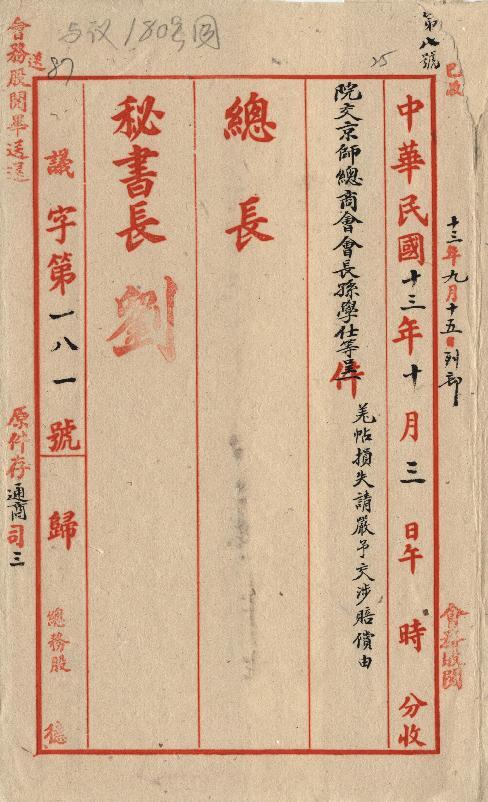 第八號
已發
十三年九月十五日到部
會務股閱
中華民國十三年十月三日午時分收
25
院交京師總商會會長孫學仕等呈件
羌帖損失請嚴予交涉賠償由
總長
秘書長劉
与汉180号同
87
議字第一八一號歸
總務股
會務股閱畢送還
原件存通商司三